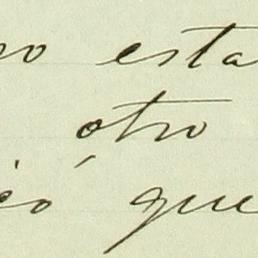 no esta
otro
ió que